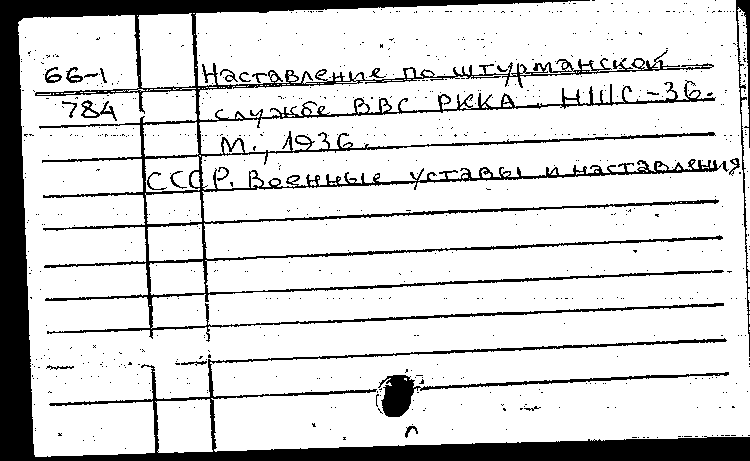 66-1 Наставление по штурманской
784 службе ВВС РККА. НШС-36.
М., 1936.
СССР. Военные уставы и наставления